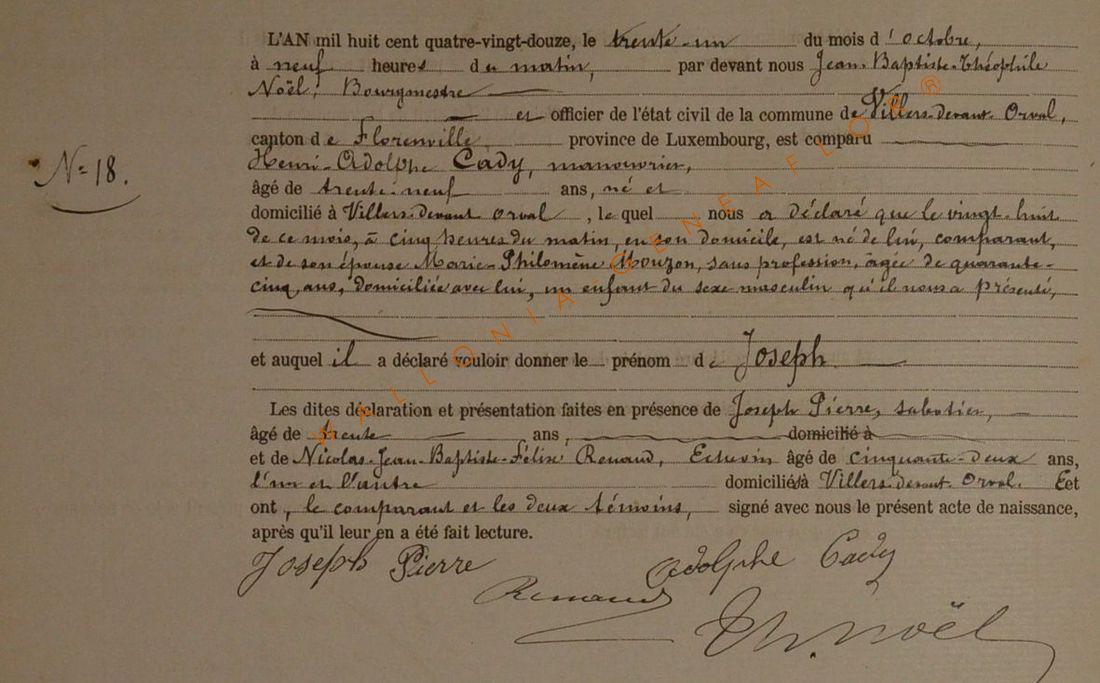 L'AN mil huit cent quatre-vingt-douze, le trente-un du mois d'octobre,
à neuf heures du matin, par devant nous Jean-Baptiste-Théophile
Noël, Bourgmestre
et officier de l'état civil de la commune de Villers-devant-Orval,
canton de Florenville province de Luxembourg, est comparu
N° 18.
Henri-Adolphe Cady, manouvrier,
âgé de trente-neuf ans, né et
domicilié à Villers-devant Orval, le quel nous a déclaré que le vingt-huit
de ce mois, à cinq heures du matin, en son domicile, est né de lui, comparant,
et de son épouse Marie-Philomène Mouzon, sans profession, âgée de quarante-
cinq ans, domiciliée avec lui, un enfant du sexe masculin qu'il nous a présenté,
et auquel il a déclaré vouloir donner le prénom de Joseph
Les dites déclaration et présentation faites en présence de Joseph Pierre, sabotier,
âgé de trente ans, domicilié à
et de Nicolas-Jean-Baptiste-Félix Renaud, Echevin âgé de cinquante-deux ans,
l'un et l'autre domiciliés à Villers-devant-Orval. Eet
ont, le comparant et les deux témoins, signé avec nous le présent acte de naissance,
après qu'il leur en a été fait lecture.
Joseph Pierre Adolphe Cady
Renaud
Th. Noël